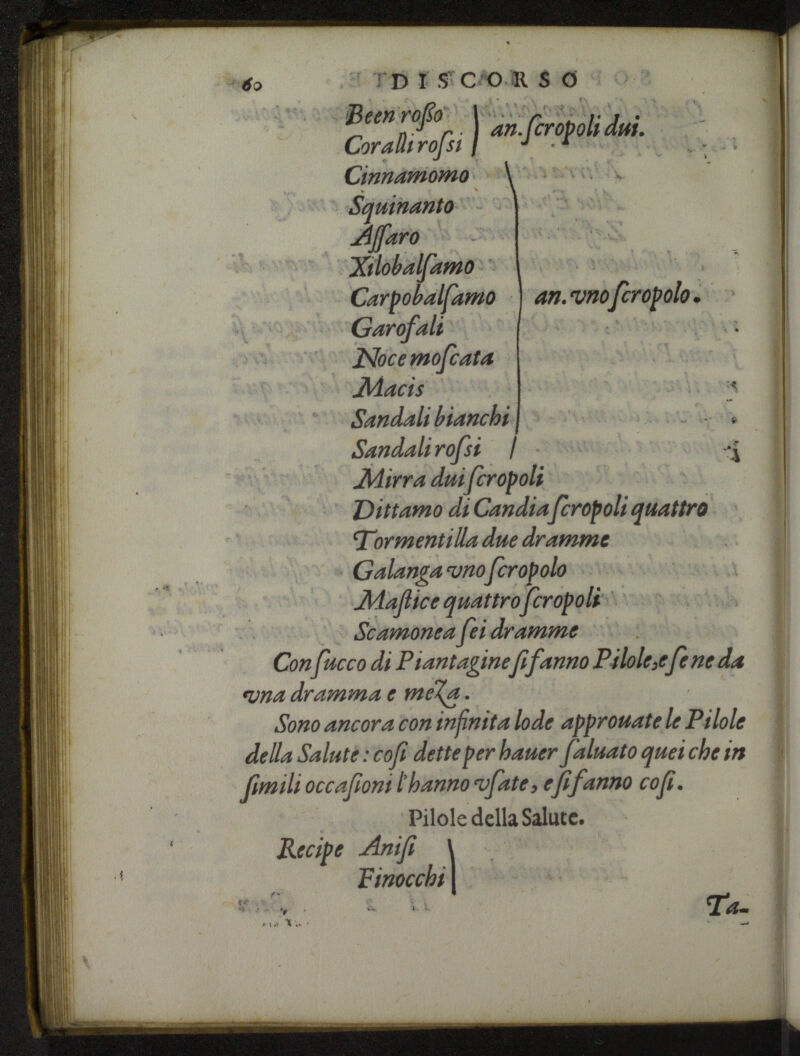 60 DISCORSO
Been roßo
Coralli roſsi
an. ſcropoli dui.
Cinnamomo
Squinanto
Aſſaro
Xilobalſamo
Carpobalſamo
Garofali
Noce moſcata
Macis
Sandali bianchi
Sandali roſsi
an. vno ſcropolo.
Mirra dui ſcropoli
Dittamo di Candia ſcropoli quattro
Tormentilla due dramme
Galanga vno ſcropolo
Maſtice quattro ſcropoli
Scamonea ſei dramme
Con ſucco di Piantagine ſi fanno Pilole, e ſe ne da
vna dramma e meza.
Sono ancora con infinita lode approuate le Pilole
della Salute: coſi dette per hauer ſaluato quei che in
ſimili occaſioni l'hanno vſate, e ſi fanno coſi.
Pilole della Salute.
Recipe Aniſi
Finocchi
Ta-